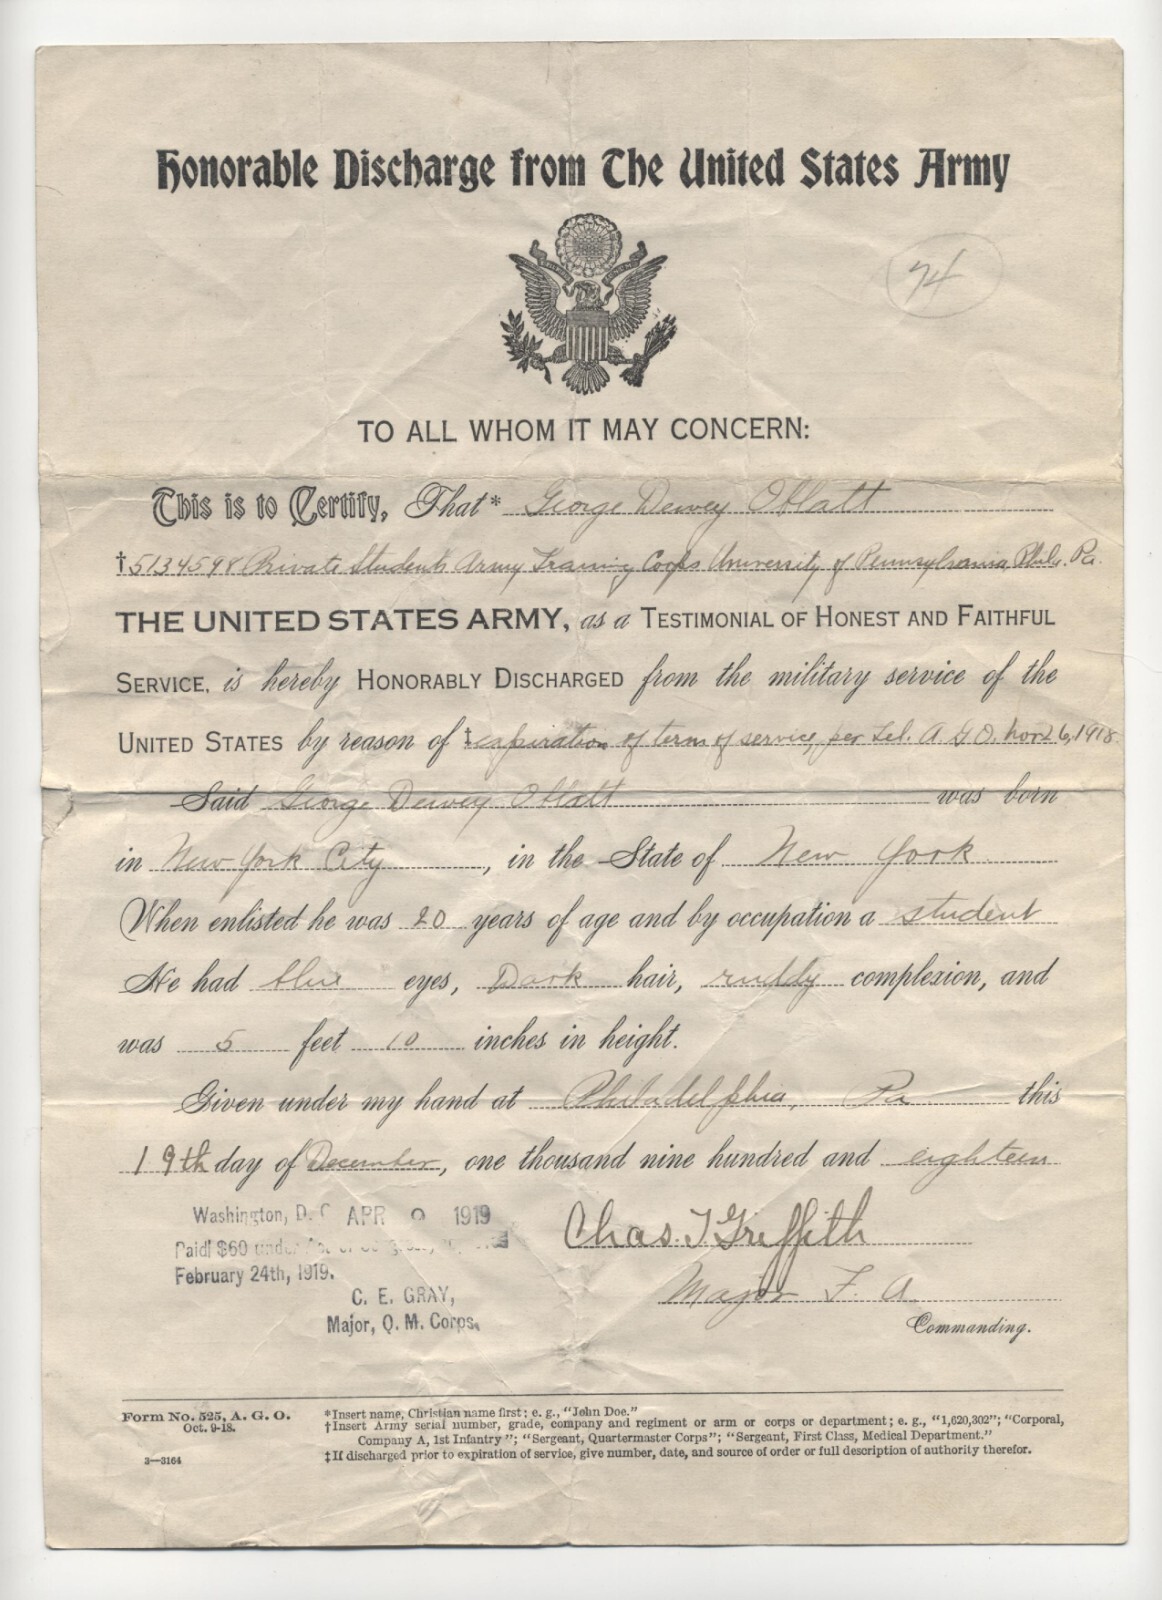 Honorable Discharge from The United States Army
74
TO ALL WHOM IT MAY CONCERN:
This is to Certify, That* George Dewey Oblatt
†5134598 Private Students Army Training Corps University of Pennsylvania, Phila. Pa.
THE UNITED STATES ARMY, as a TESTIMONIAL OF HONEST AND FAITHFUL
SERVICE, is hereby HONORABLY DISCHARGED from the military service of the
UNITED STATES by reason of ‡expiration of term of service, per Tel. A G O. Nov 26, 1918
Said George Dewey Oblatt was born
in New York City, in the State of New York
When enlisted he was 20 years of age and by occupation a student
He had blue eyes, Dark hair, ruddy complexion, and
was 5 feet 10 inches in height.
Given under my hand at Philadelphia, Pa this
19th day of December, one thousand nine hundred and eighteen
Washington, D. C APR 9 1919
Paid $60 under Act of Congress,
February 24th, 1919.
C. E. GRAY,
Major, Q. M. Corps.
Chas. T Griffith
Major F. A.
Commanding.
Form No. 525, A. G. O.
Oct. 9-18.
3—3164
*Insert name, Christian name first; e. g., "John Doe."
†Insert Army serial number, grade, company and regiment or arm or corps or department; e. g., "1,620,302"; "Corporal,
Company A, 1st Infantry"; "Sergeant, Quartermaster Corps"; "Sergeant, First Class, Medical Department."
‡If discharged prior to expiration of service, give number, date, and source of order or full description of authority therefor.